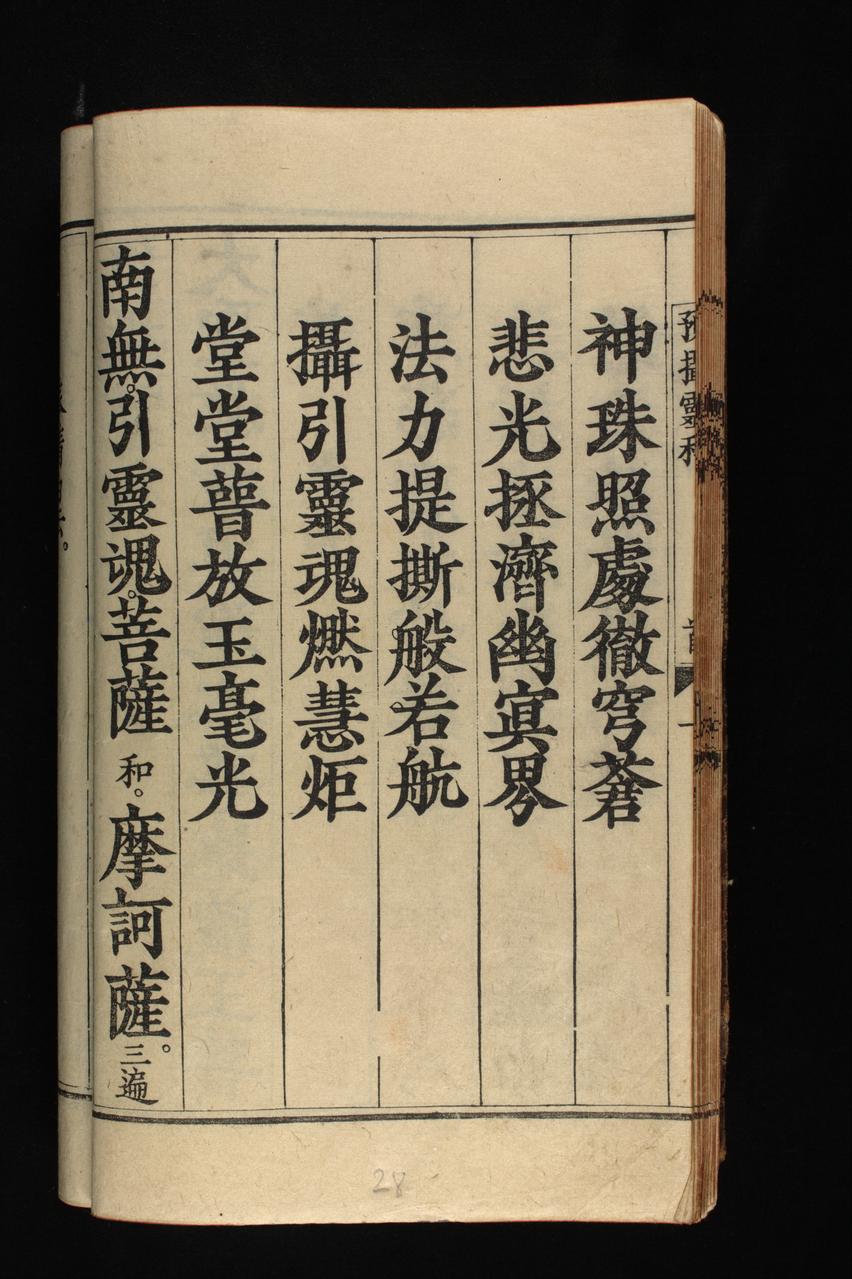 神珠照處徹穹蒼
悲光拯濟幽冥界
法力提撕般若航
攝引靈魂燃慧炬
堂堂普放玉毫光
南無。引靈魂。菩薩 和。摩訶薩。三遍
攝靈科
28